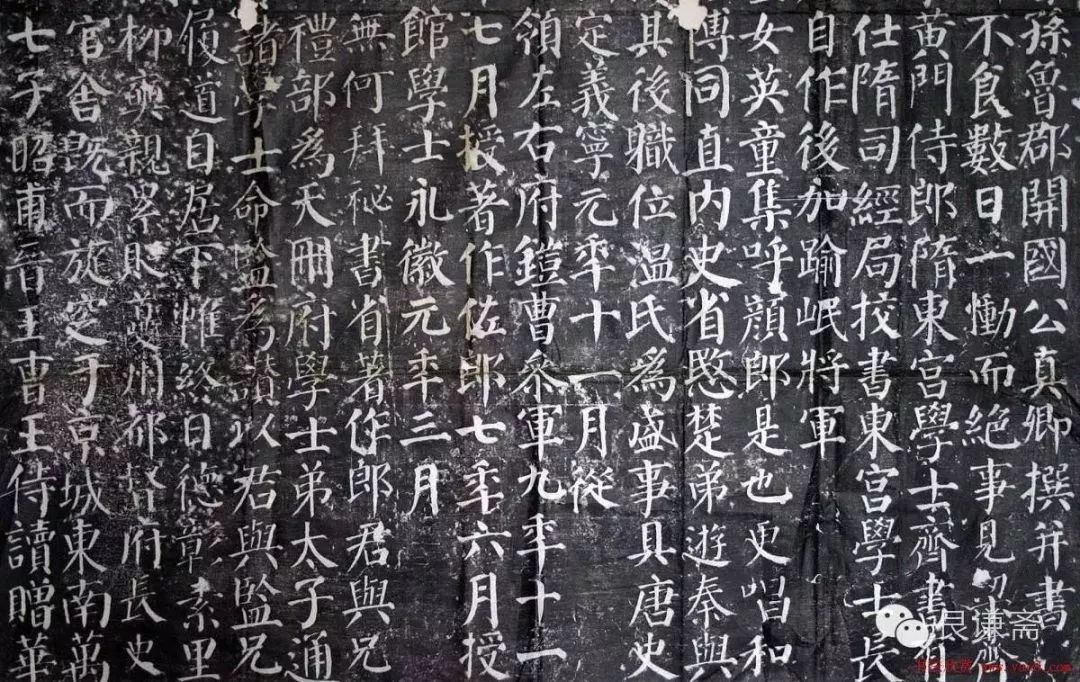 孫魯郡開國公真卿撰并書
不食數日一慟而絕事見梁齊
黃門侍郎隋東宮學士齊書有
仕隋司經局校書東宮學士長
自作後加踰岷將軍
女英童集呼顏郎是也更唱和
博同直內史省愍楚弟遊秦與
其後職位溫氏為盛事具唐史
定義寧元年十一月從
領左右府鎧曹參軍九年十一
七月授著作佐郎七年六月授
館學士永徽元年三月
無何拜祕書省著作郎君與兄
禮部為天冊府學士弟太子通
諸學士命監為讚以君與監兄
履道日居下帷終日德彰素里
柳奭親累貶夔州都督府長史
官舍既而旋窆于京城東南萬
七子昭甫晉王曹王侍讀贈華
艮谦斋